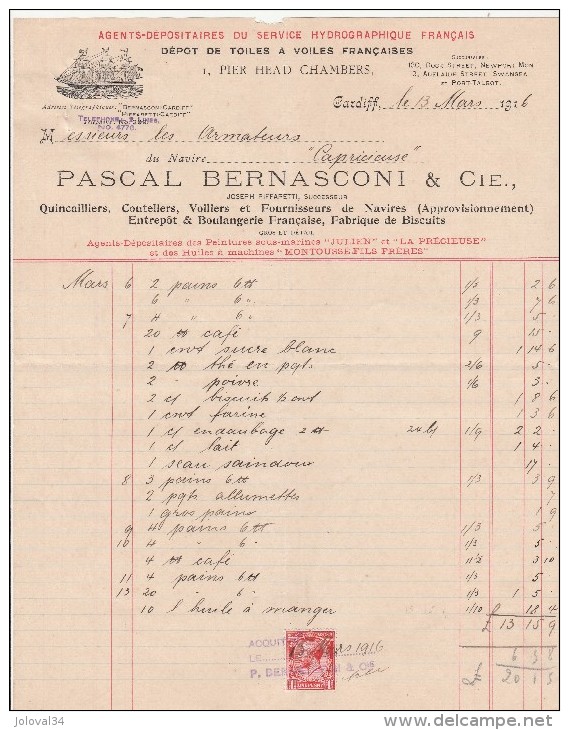 AGENTS-DÉPOSITAIRES DU SERVICE HYDROGRAPHIQUE FRANÇAIS
DÉPÔT DE TOILES À VOILES FRANÇAISES
1, PIER HEAD CHAMBERS,
Succursales:
100, DOCK STREET, NEWPORT MON
3, ADELAIDE STREET, SWANSEA
ET PORT-TALBOT.
Adresses Télégraphiques: "BERNASCONI-CARDIFF"
"PIFFARETTI-CARDIFF"
TELEPHONE
NO. 4770.
Cardiff, le 13 Mars 1916
Messieurs les Armateurs
du Navire "Capricieuse"
PASCAL BERNASCONI & CIE.,
JOSEPH PIFFARETTI, SUCCESSEUR
Quincailliers, Couteliers, Voiliers et Fournisseurs de Navires (Approvisionnement)
Entrepôt & Boulangerie Française, Fabrique de Biscuits
GROS ET DÉTAIL
Agents-Dépositaires des Peintures sous-marines "JULIEN" et "LA PRÉCIEUSE"
et des Huiles à machines "MONTOUSSE FILS FRÈRES"
Mars 6 2 pains 6 tt 1/3 2 6
6 " 6 " 1/3 7 6
7 4 " 6 " 1/3 5 .
20 tt café 9 15 .
1 cwt sucre blanc 1 14 6
2 tt thé en pqts 2/6 5 .
2 " poivre 1/6 3 .
2 cf biscuit bord 1 8 6
1 cwt farine 1 3 6
1 cf endaubage 2 tt 24 bts 1/9 2 2 .
1 cf lait 1 4 .
1 seau saindoux 17 .
8 3 pains 6 tt 1/3 3 9
2 pqts allumettes 7
1 gros pains 1 9
9 4 pains 6 tt 1/3 5 .
10 4 " 6 " 1/3 5 .
4 tt café 11½ 3 10
11 4 pains 6 tt 1/3 5 .
13 20 " 6 " 1/3 1 5 .
10 l huile à manger 1/10 18 4
£ 13 15 9
ACQUIT
LE 13 Mars 1916
P. BERNASCONI & CIE
joloval34
www.delcampe.net